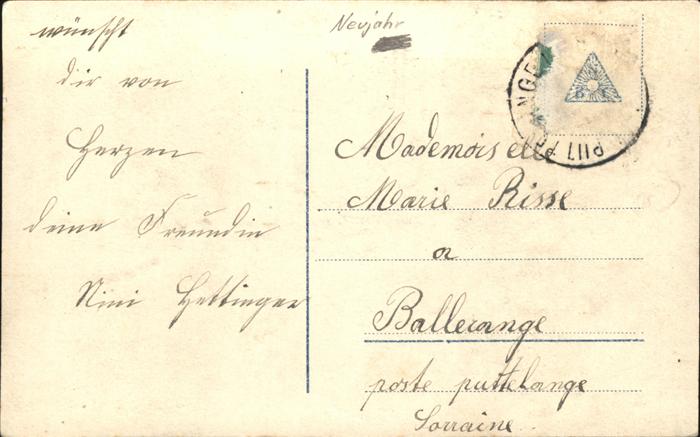 wünscht
dir von
Herzen
deine Freundin
Nini Hettinger
Neujahr
Mademoiselle
Marie Risse
a
Ballerange
poste puttelange
Lorraine